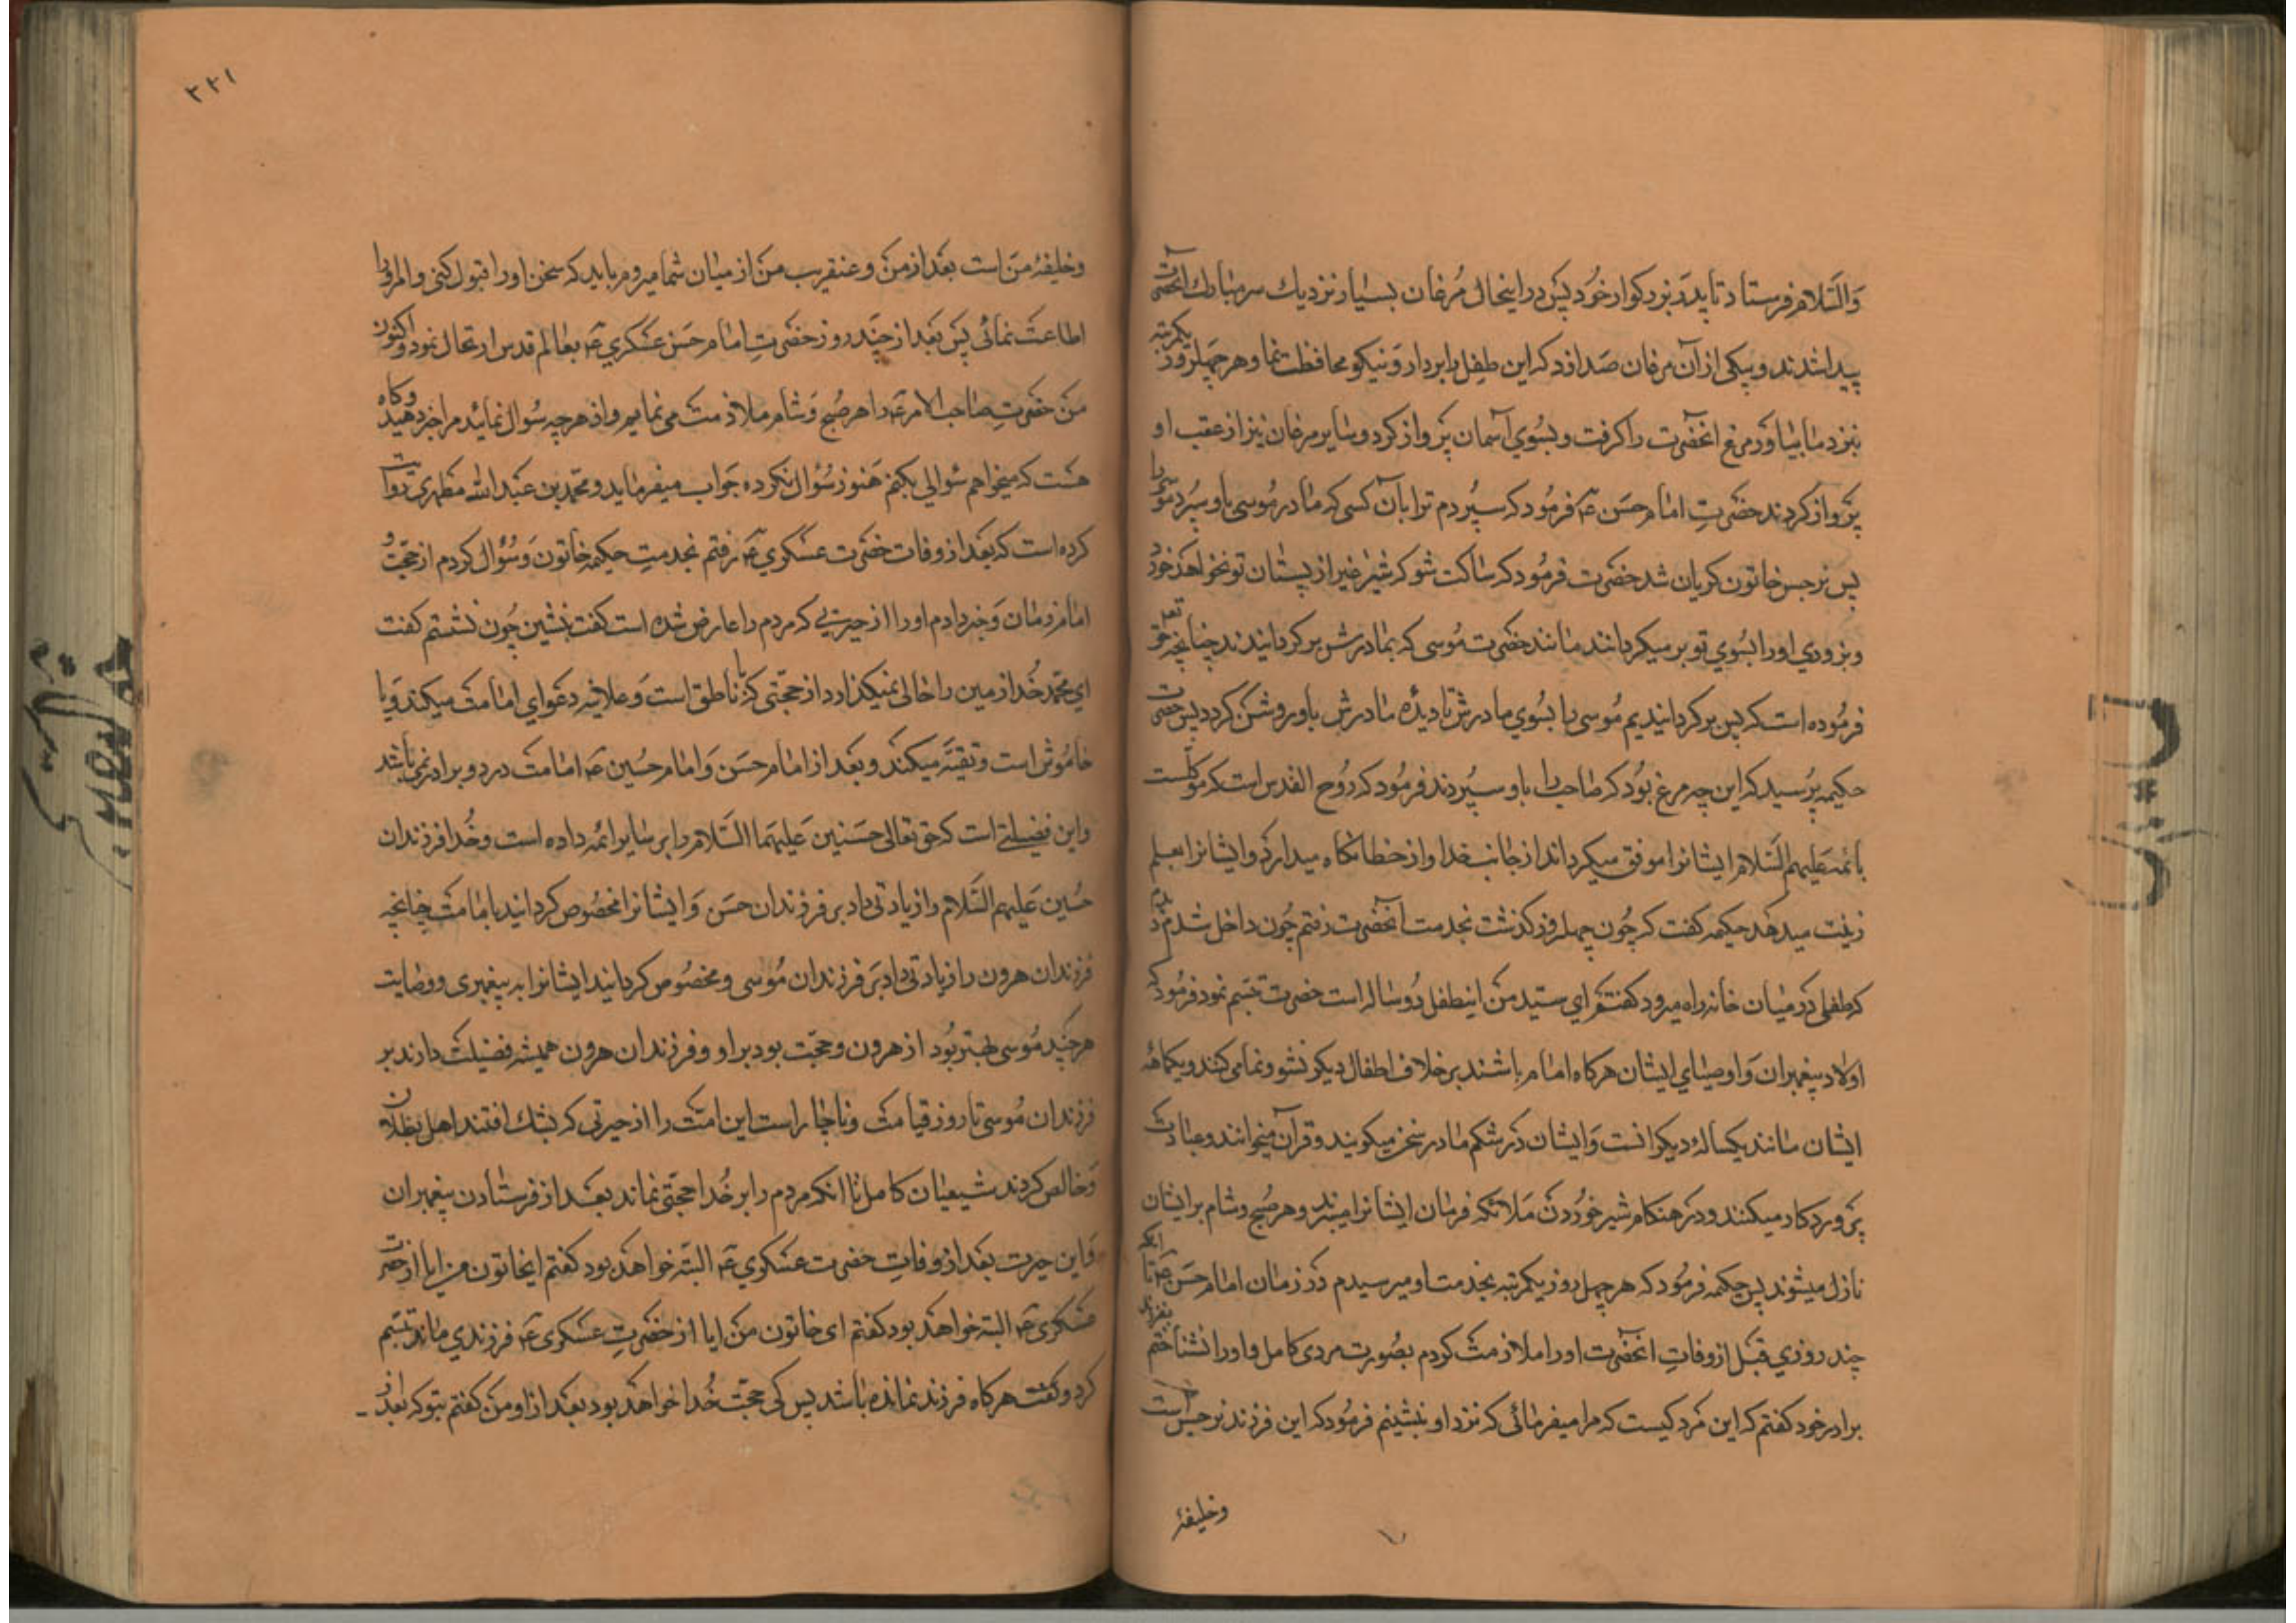 والسلام فرستاد تا پدر بزرگوار خود پس در اینحال مرغان بسیار نزدیك سر مبارك آنحضرت
پیدا شدند و بیکی از آن مرغان صدا زد که این طفل را بردار و نیکو محافظت نما و هر چهل روز یکمرتبه
بنزد ما بیاور مرغ انحضرت را گرفت و بسوی آسمان پرواز کرد و سایر مرغان نیز از عقب او
پرواز کردند حضرت امام حسن ع فرمود که سپردم ترا بآن کسی که مادر موسی باو سپرد موسی را
پس نرجس خاتون گریان شد حضرت فرمود که ساکت شو که شیر غیر از پستان تو نخواهد خورد
و بزودی او را بسوی تو بر میگردانند مانند حضرت موسی که بمادرش برگردانیدند چنانچه حق تعالی
فرموده است که پس برگردانیدیم موسی را بسوی مادرش تا دیده مادرش باو روشن گردد پس حضرت
حکیمه پرسید که این چه مرغ بود که صاحب را باو سپردند فرمود که روح القدس است که موکلست
بائمه علیهم السلام ایشانرا موفق میگرداند از جانب خدا و از خطا نگاه میدارد و ایشانرا بعلم
زینت میدهد حکیمه گفت که چون چهل روز گذشت بخدمت آنحضرت رفتم چون داخل شدم دیدم
که طفلی در میان خانه راه میرود گفتم ای سید من اینطفل دو ساله است حضرت تبسم نمود فرمود که
اولاد پیغمبران و اوصیای ایشان هرگاه امام باشند بر خلاف اطفال دیگر نشو و نما می کنند و یکماهه
ایشان مانند یکساله دیگرانست و ایشان در شکم مادر سخن میگویند و قرآن میخوانند و عبادت
پروردگار میکنند و در هنگام شیر خوردن ملائکه فرمان ایشانرا میبرند و هر صبح و شام بر ایشان
نازل میشوند پس حکیمه فرمود که هر چهل روز یکمرتبه بخدمت او میرسیدم در زمان امام حسن ع تا اینکه
چند روزی قبل از وفات انحضرت او را ملازمت کردم بصورت مردی کامل و او را نشناختم
برادر خود گفتم که این مرد کیست که مرا میفرمائی که نزد او بنشینم فرمود که این فرزند نرجس است
وخلیفهٔ
۳۳۱
وخلیفهٔ من است بعد از من و عنقریب من از میان شما میروم باید که سخن او را قبول کنی و امر او را
اطاعت نمائی پس بعد از چند روز حضرت امام حسن عسکری ع بعالم قدس ارتحال نمود و اکنون
من حضرت صاحب الامر ع را هر صبح و شام ملازمت می نمایم و از هر چه سؤال نمائید مرا خبر دهید و گاه
هست که میخواهم سئوالی بکنم هنوز سؤال نکرده جواب میفرماید و محمد بن عبد الله مطهری روایت
کرده است که بعد از وفات حضرت عسکری ع رفتم بخدمت حکیمه خاتون و سؤال کردم از حجت و
امام زمان و خبر دادم او را از حیرتی که مردم را عارض شده است گفت بنشین چون نشستم گفت
ای محمد خدا زمین را خالی نمیگذارد از حجتی که یا ناطق است و علانیه دعوای امامت میکند و یا
خاموش است و تقیه میکند و بعد از امام حسن و امام حسین ع امامت در دو برادر نمی باشد
واین فضیلتی است که حق تعالی حسنین علیهما السلام را بر سایر ائمه داده است و خدا فرزندان
حسین علیهم السلام را زیادتی داد بر فرزندان حسن و ایشانرا مخصوص گردانید بامامت چنانچه
فرزندان هرون را زیادتی داد بر فرزندان موسی و مخصوص گردانید ایشانرا به پیغمبری و وصایت
هر چند موسی بهتر بود از هرون و حجت بود بر او و فرزندان هرون همیشه فضیلت دارند بر
فرزندان موسی تا روز قیامت و ناچار است این امت را از حیرتی که بشك افتند اهل بطلان
و خالص گردند شیعیان کامل تا انکه مردم را بر خدا حجتی نماند بعد از فرستادن پیغمبران
و این حیرت بعد از وفات حضرت عسکری ع البته خواهد بود گفتم ایخاتون من ایا از حضرت
عسکری ع البته خواهد بود گفتم ای خاتون من ایا از حضرت عسکری ع فرزندی ماند تبسم
کرد و گفت هرگاه فرزند نمانده باشد پس کی حجت خدا خواهد بود بعد از او من گفتم بتو که بعد از